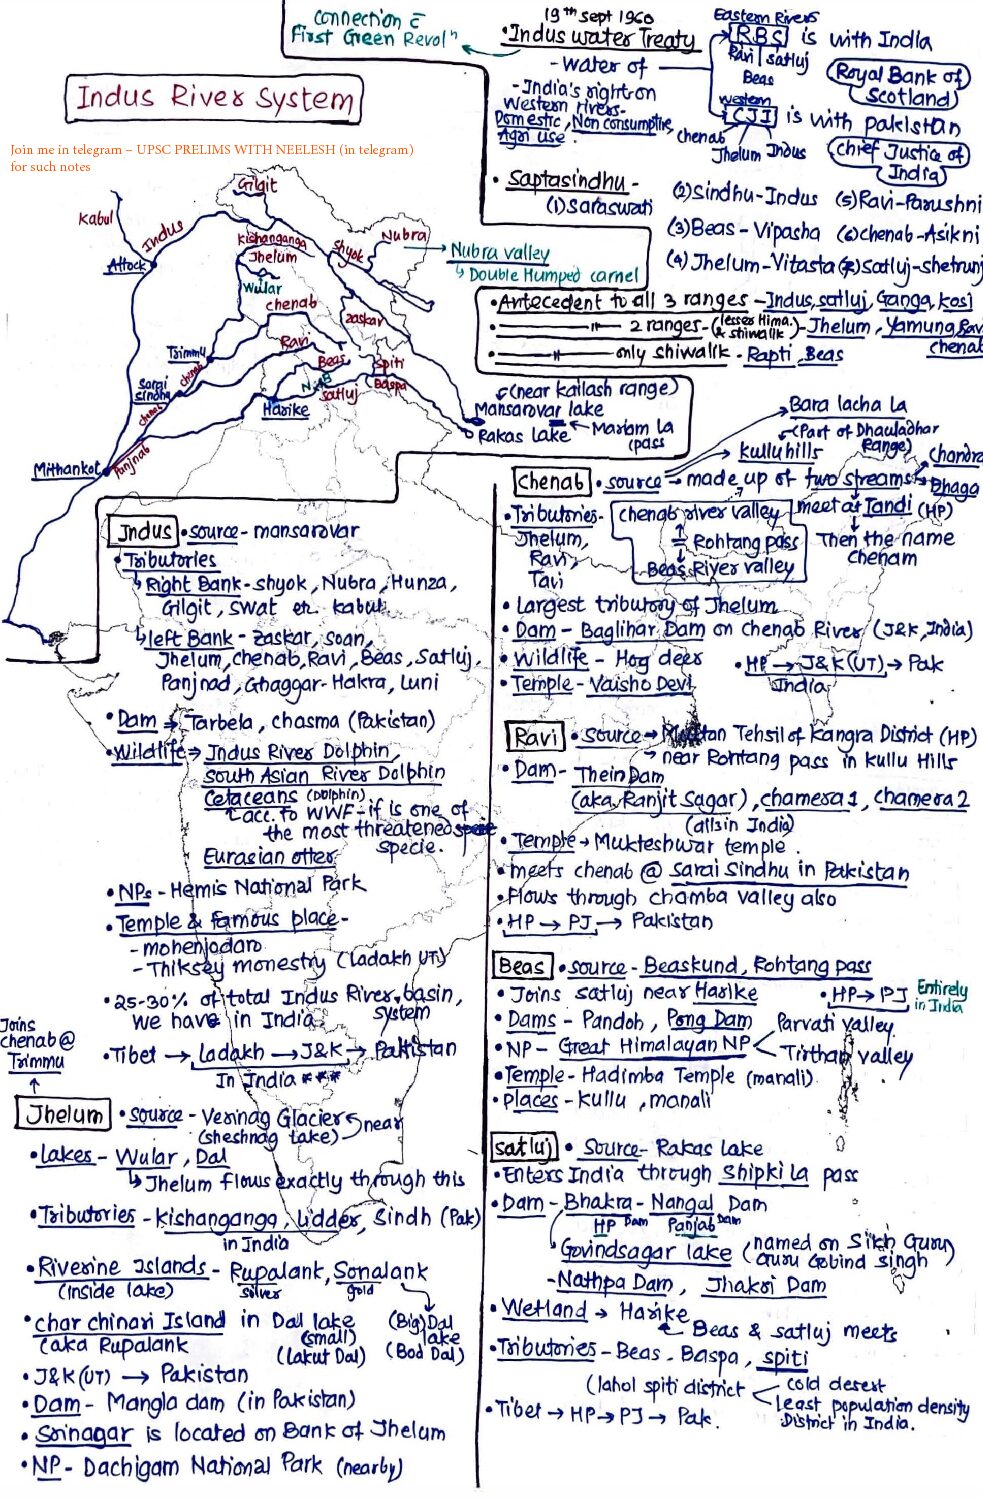 connection c̄
First Green Revolⁿ
19th sept 1960
•Indus water Treaty
- water of
Eastern Rivers
RBS is with India
Ravi satluj
Beas
Royal Bank of
Scotland
western
CJI is with pakistan
chenab
Jhelum Indus
chief Justice of
India
- India's right on
Western rivers-
Domestic, Non consumptive,
Agri use.
Indus River System
Join me in telegram – UPSC PRELIMS WITH NEELESH (in telegram)
for such notes
• Saptasindhu -
(1) Saraswati
(2) Sindhu-Indus
(3) Beas - Vipasha
(4) Jhelum-Vitasta
(5) Ravi-Parushni
(6) chenab-Asikni
(7) Satluj-Shetrunj
•Antecedent to all 3 ranges - Indus, satluj, Ganga, kosi
• —〃— 2 ranges-(lesser Hima. & shiwalik)-Jhelum, Yamuna, Ravi
chenab
• —〃— only shiwalik - Rapti, Beas
Gilgit
Kabul
Indus
Attock
Kishanganga
Jhelum
Wular
chenab
shyok
Nubra
Nubra valley
↳ Double Humped camel
zaskar
Trimmu
Ravi
Beas
spiti
Baspa
satluj
chenab
Sarai
sindhu
chenab
Harike
Mithankot
Panjnab
(near kailash range)
Mansarovar lake
Rakas lake
Mariam La
(pass
Indus • source - mansarovar
• Tributories
↳ Right Bank - shyok, Nubra, Hunza,
Gilgit, swat etc kabul
↳ left Bank - zaskar, soan,
Jhelum, chenab, Ravi, Beas, Satluj,
Panjnad, Ghaggar-Hakra, Luni
• Dam → Tarbela, chasma (Pakistan)
• Wildlife → Indus River Dolphin,
south Asian River Dolphin
Cetaceans (Dolphin)
↳ acc. to WWF - if is one of
the most threatened
specie.
Eurasian otter
• NPs - Hemis National Park
• Temple & famous place -
- mohenjodaro
- Thiksey monestry (Ladakh UT)
• 25-30% of total Indus River basin,
system
we have in India
• Tibet → Ladakh → J&K → Pakistan
In India ***
Joins
chenab @
Trimmu
↑
Jhelum • source - Verinag Glacier
(sheshnag lake)
near
• Lakes - Wular, Dal
↳ Jhelum flows exactly through this
• Tributories - Kishanganga, Lidder, Sindh (Pak)
in India
• Riverine Islands - Rupalank, Sonalank
(inside lake)
silver
gold
• char chinari Island in Dal lake
(aka Rupalank
(small)
(Lakut Dal)
(Big) Dal
lake
(Bod Dal)
• J&K (UT) → Pakistan
• Dam - Mangla dam (in Pakistan)
• Srinagar is located on Bank of Jhelum
• NP - Dachigam National Park (nearby)
Bara lacha la
(Part of Dhauladhar
Range)
kullu hills
chenab • source → made up of two streams
chandra
Bhaga
meet at Tandi (HP)
Then the name
chenam
• Tributories-
Jhelum,
Ravi,
Tavi
chenab river valley
Rohtang pass
Beas River valley
• Largest tributory of Jhelum
• Dam - Baglihar Dam on chenab River (J&K, India)
• Wildlife - Hog deer
• HP → J&K(UT) → Pak
India
• Temple - Vaisho Devi
Ravi • source → Tehsil of Kangra District (HP)
→ near Rohtang pass in kullu Hills
• Dam - Thein Dam
(aka Ranjit Sagar), chamera 1, chamera 2
(all in India)
• Temple → Mukteshwar temple.
• meets chenab @ Sarai Sindhu in Pakistan
• flows through chamba valley also
• HP → PJ → Pakistan
Beas • source - Beaskund, Rohtang pass
• Joins satluj near Harike
• HP → PJ Entirely
in India
• Dams - Pandoh, Pong Dam
• NP - Great Himalayan NP
Parvati valley
Tirthan valley
• Temple - Hadimba Temple (manali)
• places - kullu, manali
satluj • Source - Rakas lake
• Enters India through shipki la pass
• Dam - Bhakra - Nangal Dam
HP Dam Panjab Dam
Govindsagar lake (named on Sikh Guru
Guru Gobind singh)
- Nathpa Dam, Jhakri Dam
• Wetland → Harike
Beas & satluj meets
• Tributories - Beas, Baspa, spiti
(lahol spiti district
cold desert
Least population density
District in India.
• Tibet → HP → PJ → Pak.